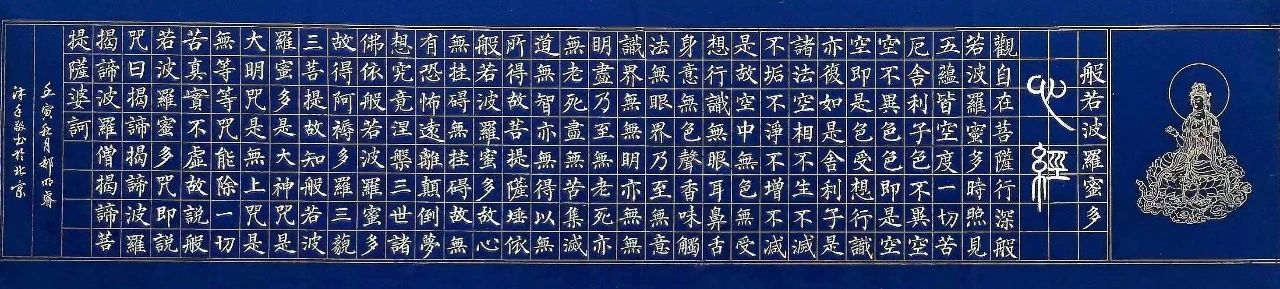 般若波羅蜜多
心經
觀自在菩薩行深般
若波羅蜜多時照見
五蘊皆空度一切苦
厄舍利子色不異空
空不異色色即是空
空即是色受想行識
亦復如是舍利子是
諸法空相不生不滅
不垢不淨不增不減
是故空中無色無受
想行識無眼耳鼻舌
身意無色聲香味觸
法無眼界乃至無意
識界無無明亦無無
明盡乃至無老死亦
無老死盡無苦集滅
道無智亦無得以無
所得故菩提薩埵依
般若波羅蜜多故心
無挂碍無挂碍故無
有恐怖遠離顛倒夢
想究竟涅槃三世諸
佛依般若波羅蜜多
故得阿耨多羅三藐
三菩提故知般若波
羅蜜多是大神咒是
大明咒是無上咒是
無等等咒能除一切
苦真實不虛故說般
若波羅蜜多咒即說
咒曰揭諦揭諦波羅
揭諦波羅僧揭諦菩
提薩婆訶
壬寅秋月郝
沐手敬书於北京